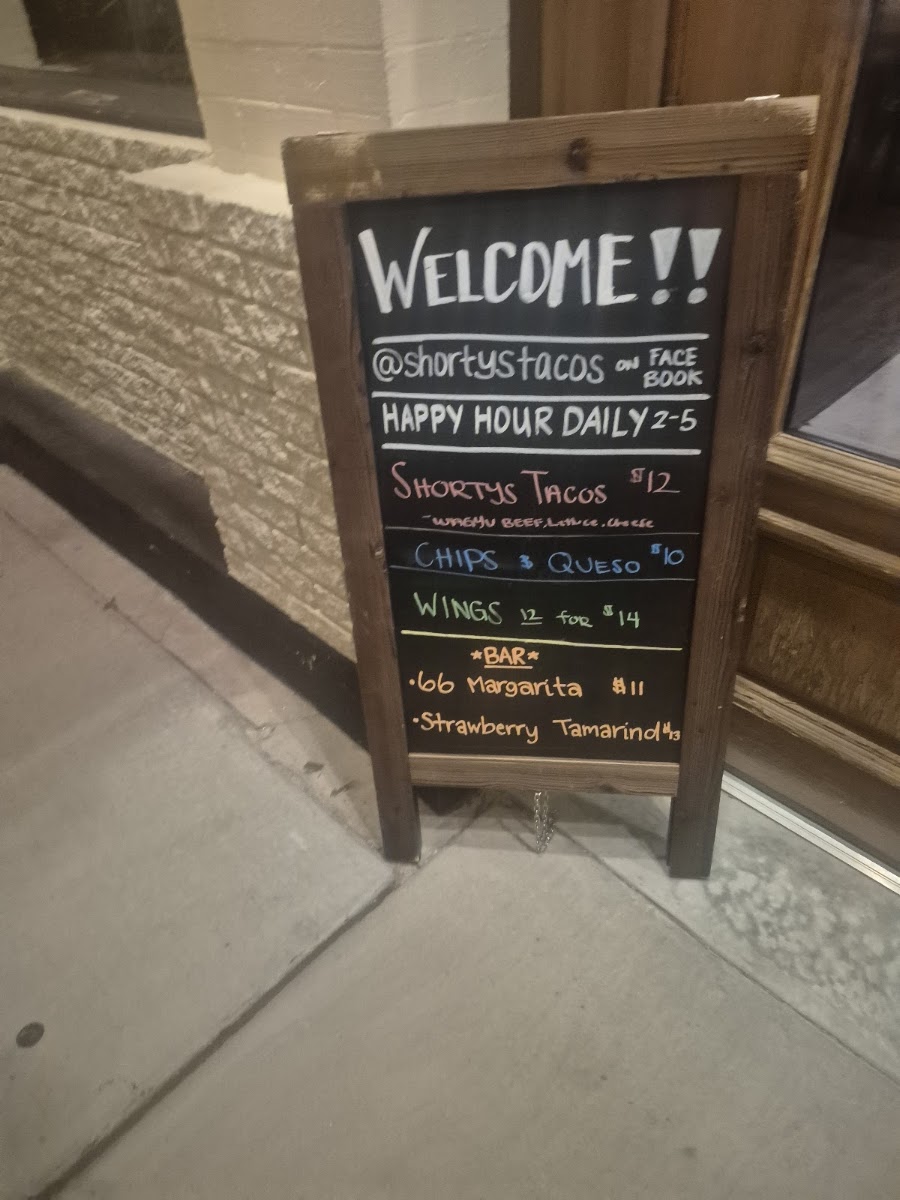 WELCOME!!
@shortystacos ON FACE BOOK
HAPPY HOUR DAILY 2-5
SHORTYS TACOS $12
-WAGYU BEEF, Lettuce, Cheese
CHIPS & QUESO $10
WINGS 12 for $14
*BAR*
•66 Margarita $11
•Strawberry Tamarind $13